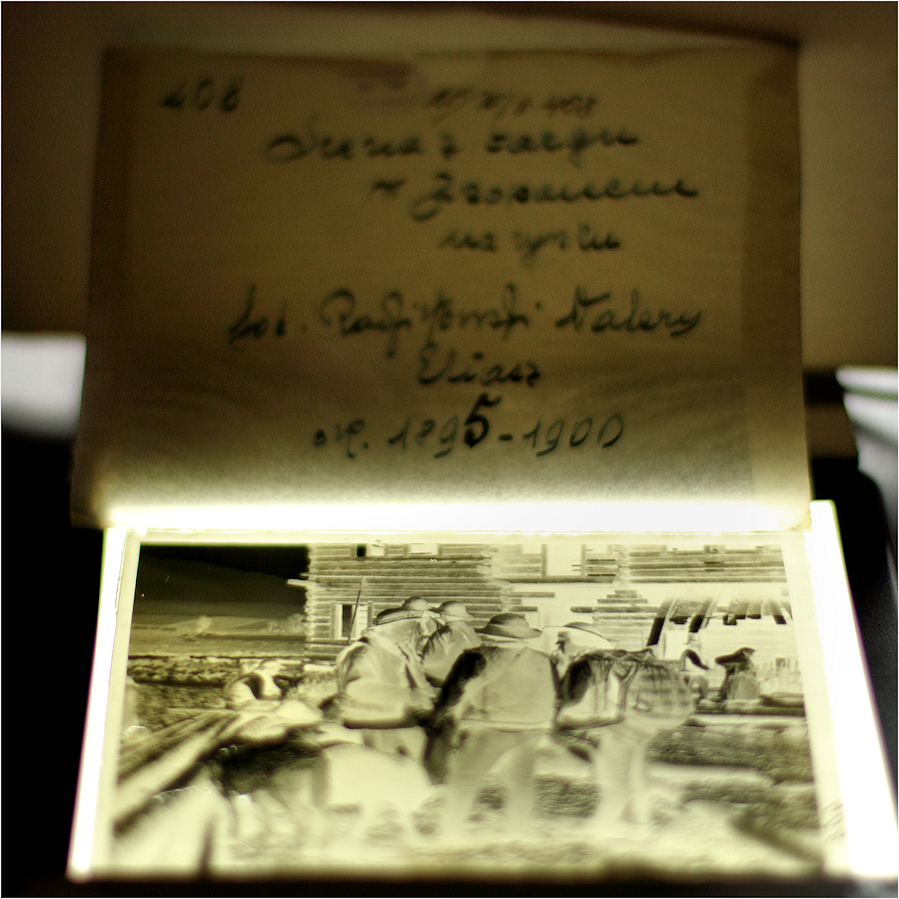 408
408
Scena z targu
w Zakopanem
na rynku
fot. Radzikowski Walery
Eliasz
ok. 1895-1900